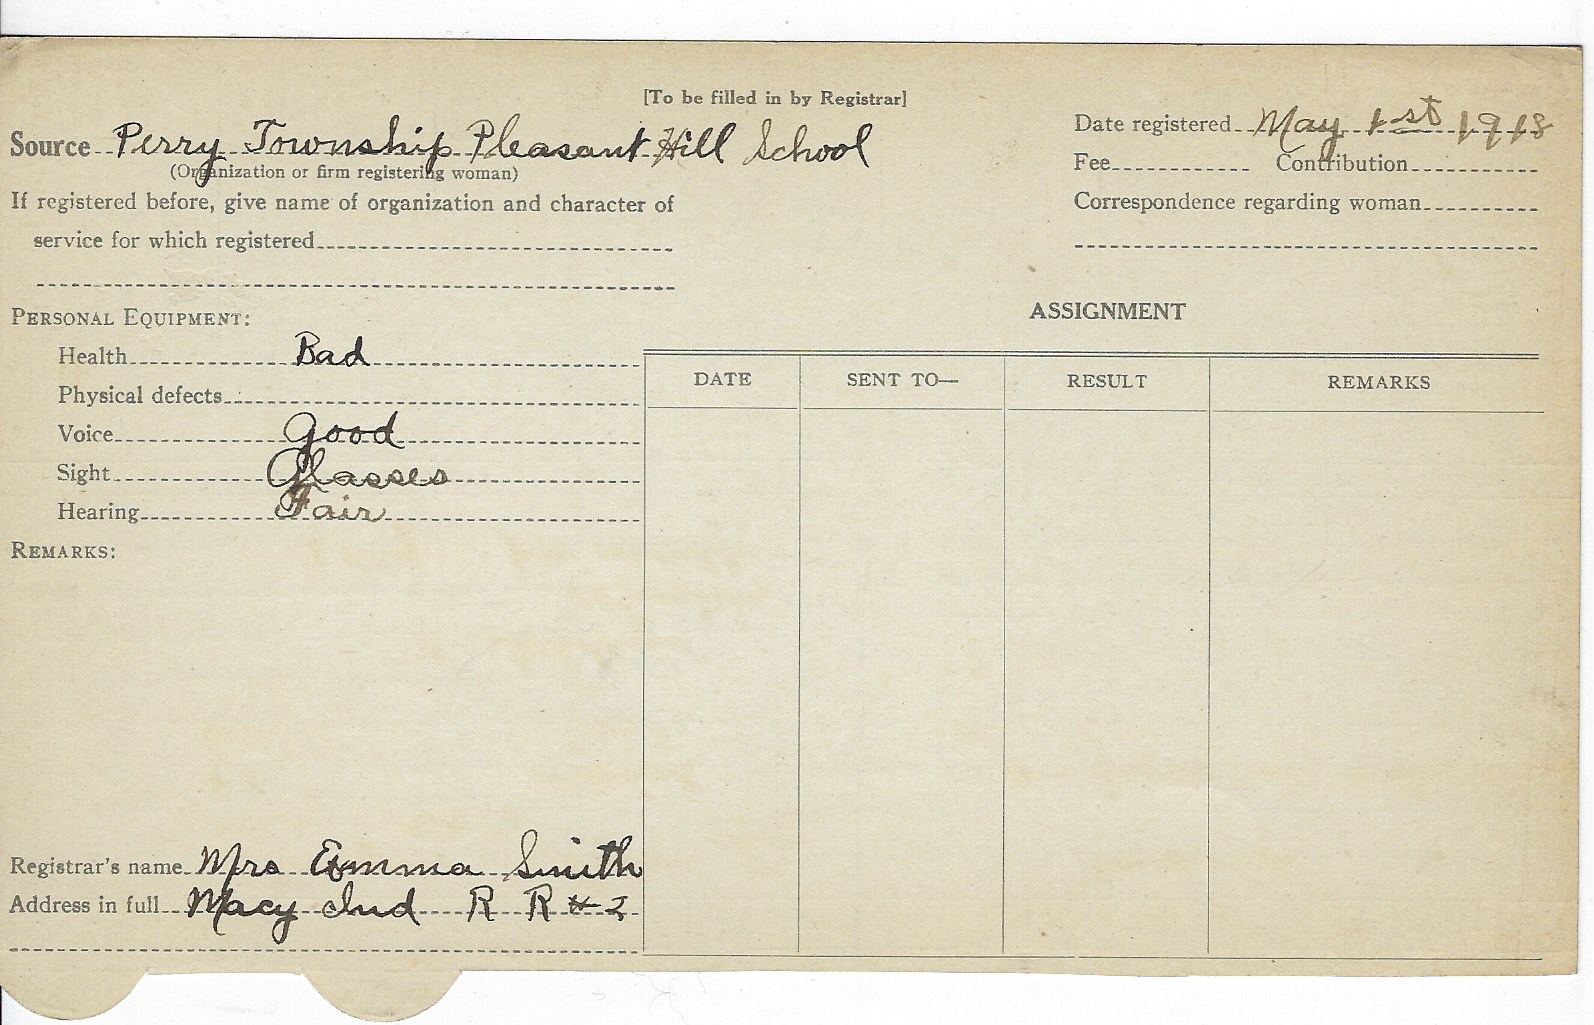 [To be filled in by Registrar]
Source Perry Township Pleasant Hill School
(Organization or firm registering woman)
If registered before, give name of organization and character of
service for which registered
Date registered May 1st 1918
Fee Contribution
Correspondence regarding woman
PERSONAL EQUIPMENT:
Health Bad
Physical defects
Voice Good
Sight Glasses
Hearing Fair
REMARKS:
ASSIGNMENT
DATE SENT TO— RESULT REMARKS
Registrar's name Mrs Emma Smith
Address in full Macy Ind R R # 2